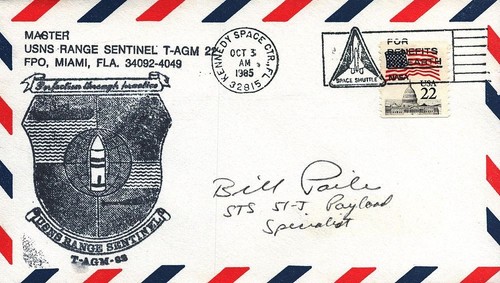 MASTER
USNS RANGE SENTINEL T-AGM 22
FPO, MIAMI, FLA. 34092-4049
Perfection through practice
USNS RANGE SENTINEL
T-AGM-22
KENNEDY SPACE CTR., FL
OCT 3
AM
1985
32815
SPACE SHUTTLE
FOR
BENEFITS
EARTH
NASA
USA
22
Bill
STS 51-J Payload
Specialist